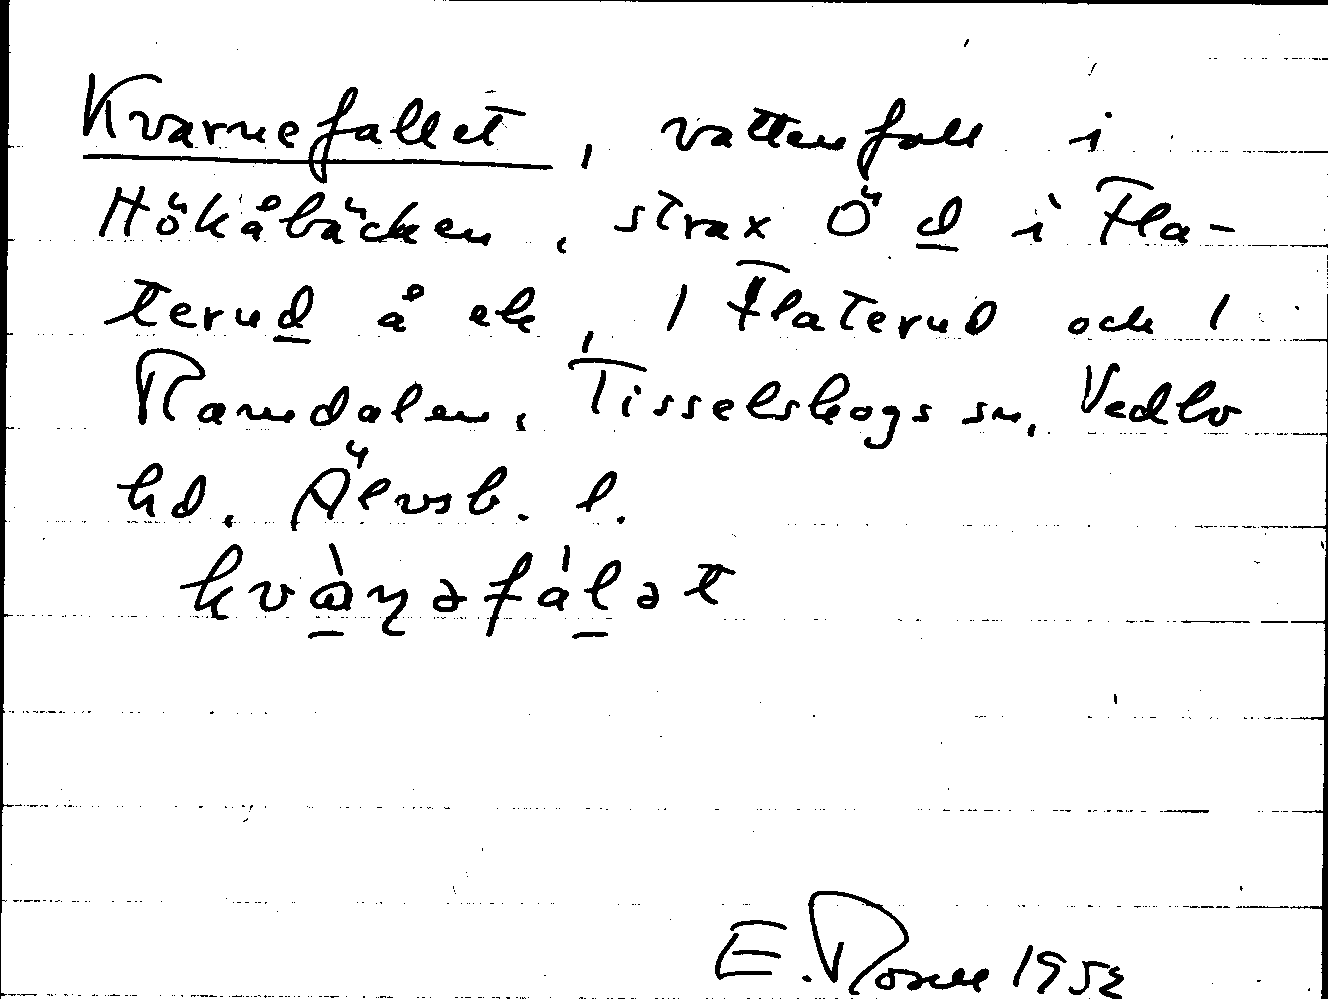 Kvarnefallet, vattenfall i
Hökåbäcken, strax Ö d i Fla-
terud å ek, 1 Flaterud och 1
Ramdalen, Tisselskogs sn, Vedbo
hd. Älvsb. l.
kvàṇəfálət
E. Rosell 1952